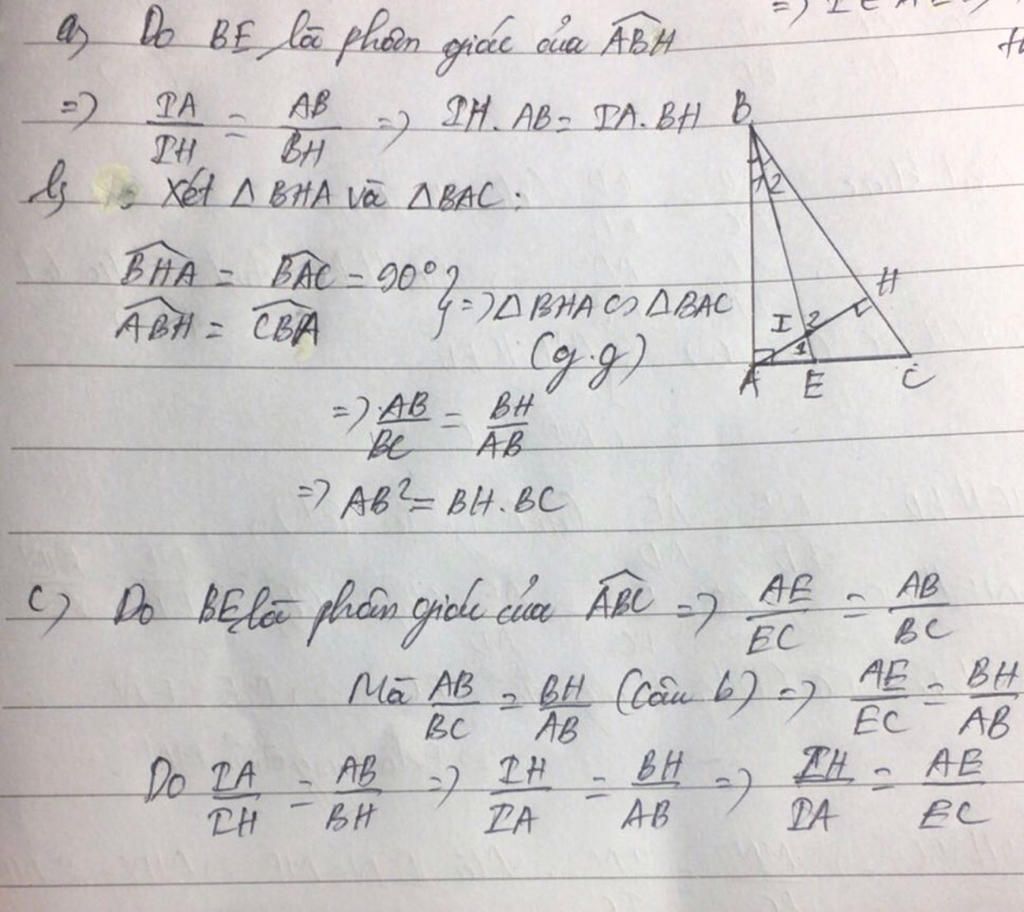 a) Do BE là phân giác của ABH
=> IA/IH = AB/BH => IH. AB = IA. BH
b) Xét △BHA và △BAC:
BHA = BAC = 90°
ABH = CBA } => △BHA ∽ △BAC
(g.g)
=> AB/BC = BH/AB
=> AB² = BH. BC
c) Do BE là phân giác của ABC => AE/EC = AB/BC
Mà AB/BC = BH/AB (Câu b) => AE/EC = BH/AB
Do IA/IH = AB/BH => IH/IA = BH/AB => IH/IA = AE/EC
B
1 2
H
I 2
1
A E C